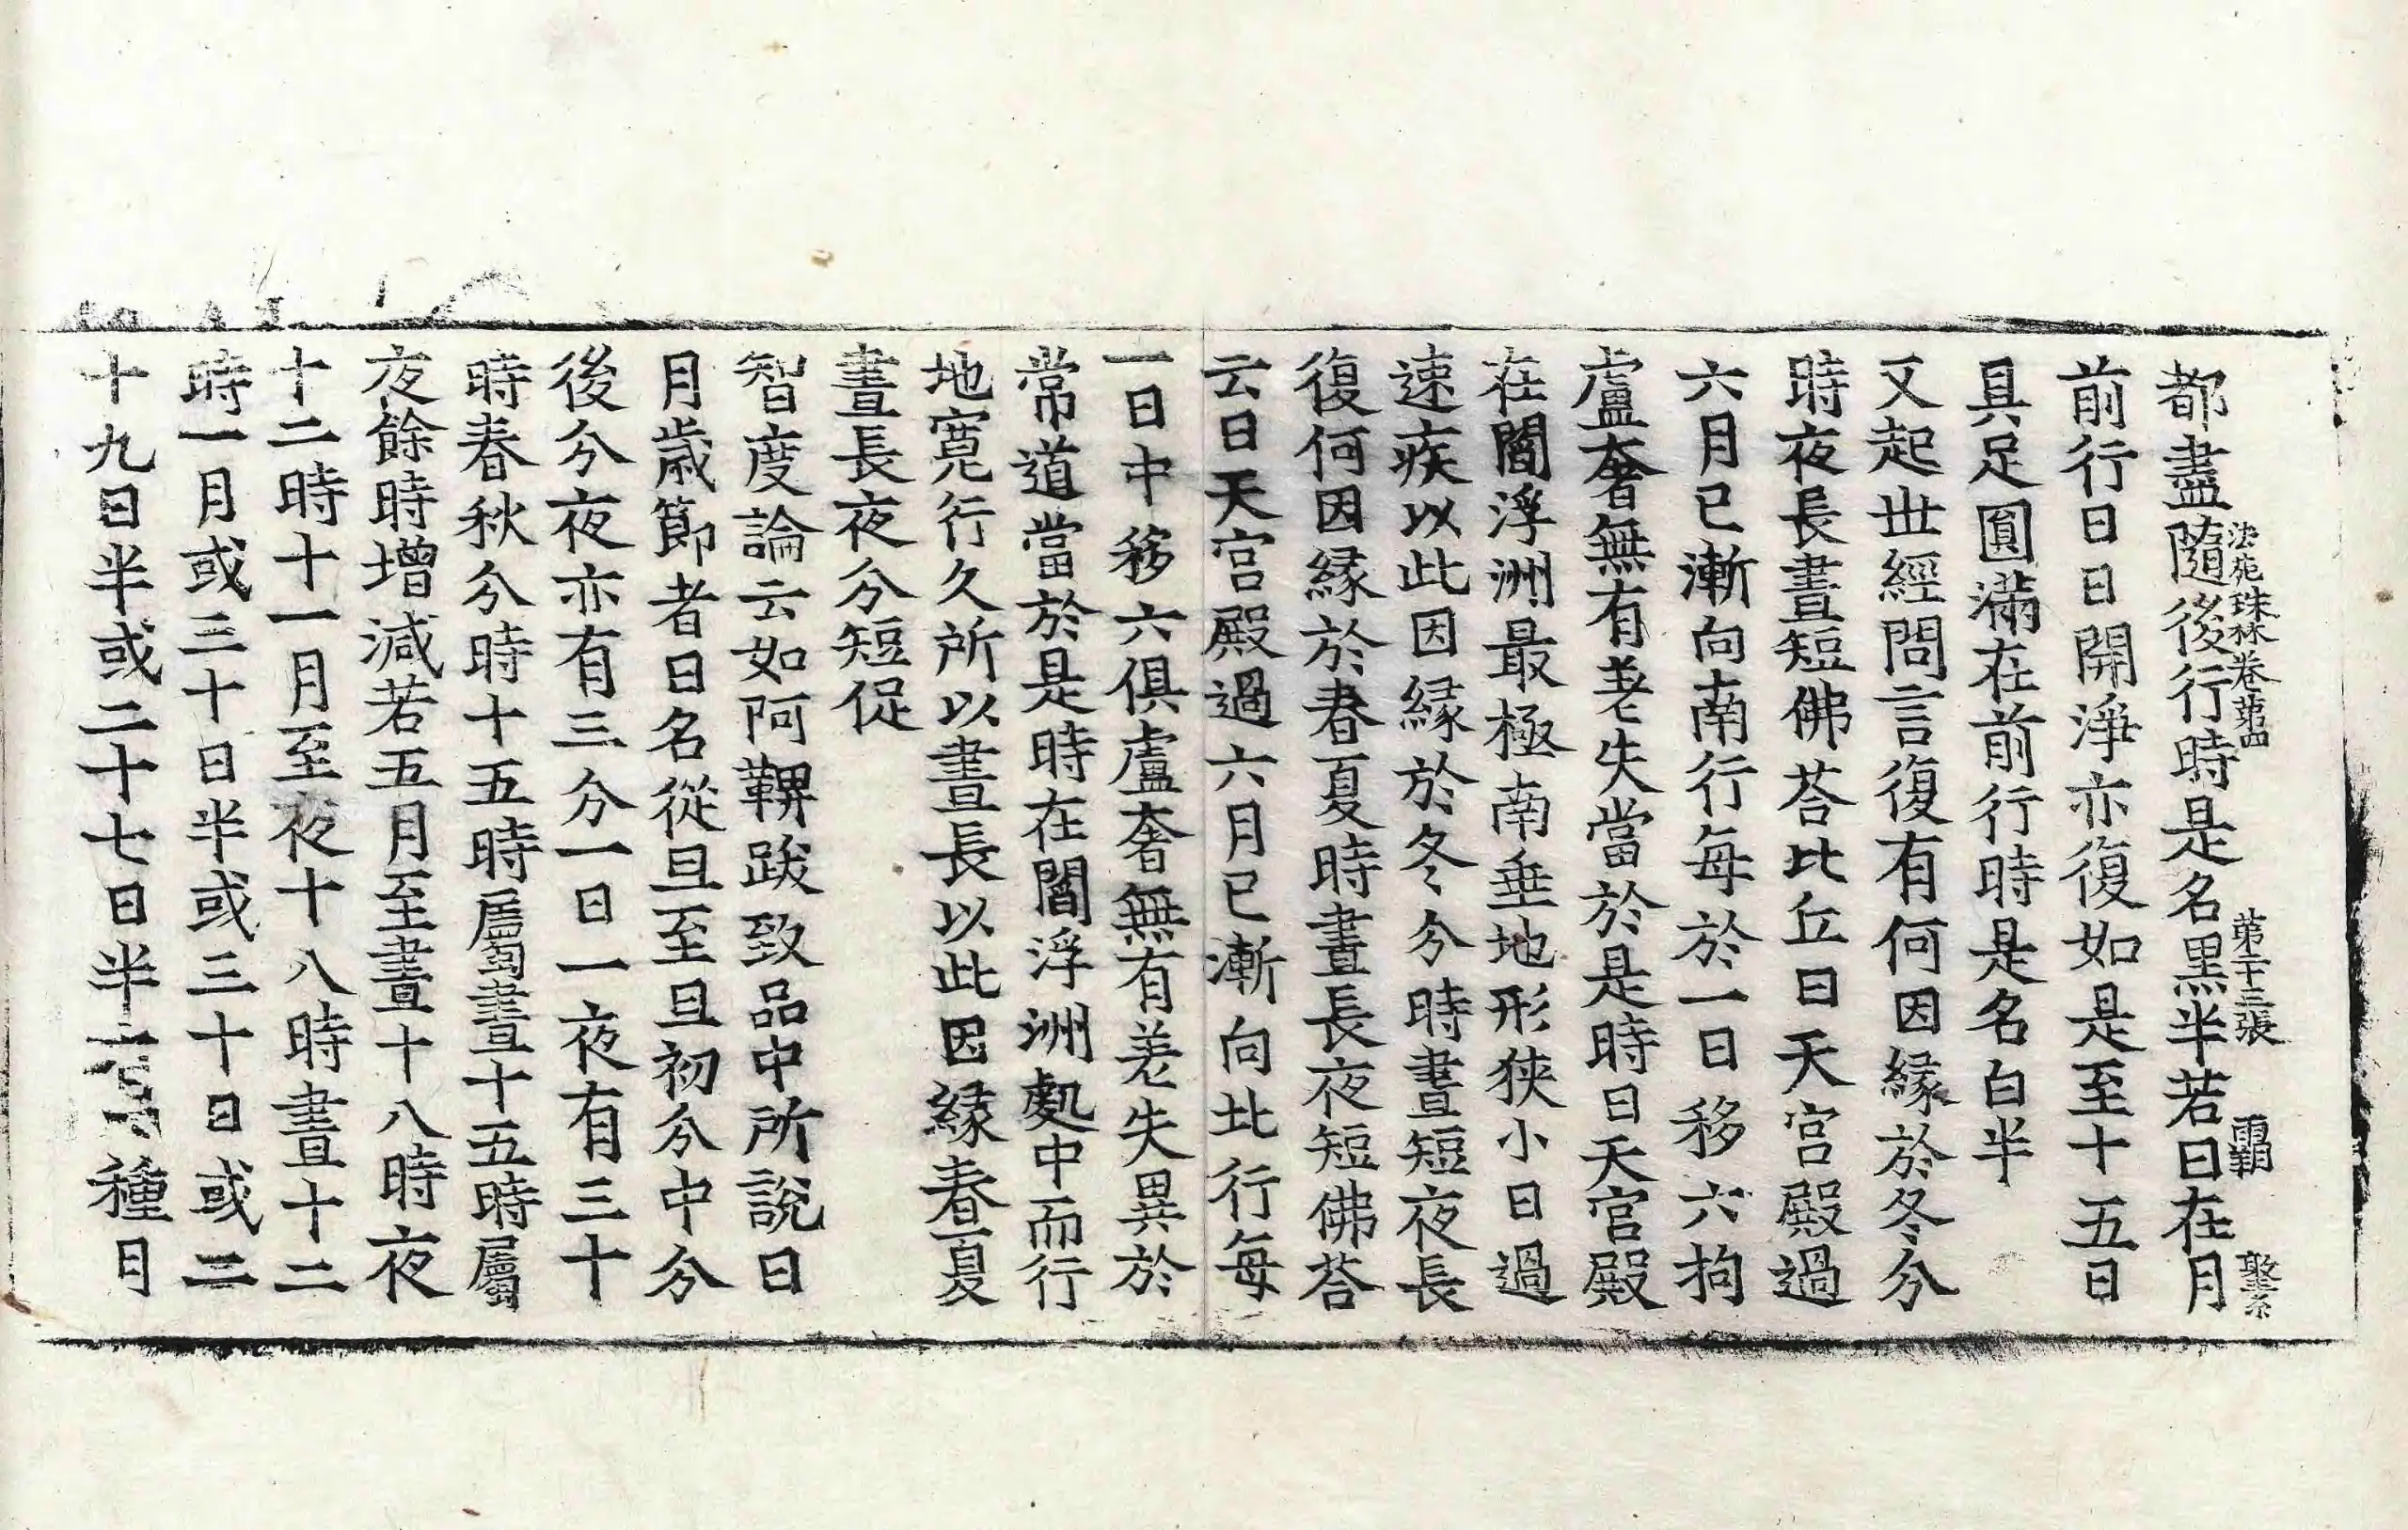 都盡隨後行時是名黑半若日在月
法苑珠林卷第四 第十三張 覇
前行日日開淨亦復如是至十五日
具足圓滿在前行時是名白半
又起世經問言復有何因縁於冬分
時夜長晝短佛荅比丘日天宮殿過
六月已漸向南行每於一日移六拘
盧奢無有差失當於是時日天宮殿
在閻浮洲最極南垂地形狹小日過
速疾以此因縁於冬分時晝短夜長
復何因縁於春夏時晝長夜短佛荅
云日天宮殿過六月已漸向北行每
一日中移六俱盧奢無有差失異於
常道當於是時在閻浮洲處中而行
地寬行久所以晝長以此因縁春夏
晝長夜分短促
智度論云如阿鞞跋致品中所說日
月歲節者日名從旦至旦初分中分
後分夜亦有三分一日一夜有三十
時春秋分時十五時屬晝十五時屬
夜餘時增減若五月至晝十八時夜
十二時十一月至夜十八時晝十二
時一月或三十日半或三十日或二
十九日半或二十七日半種月